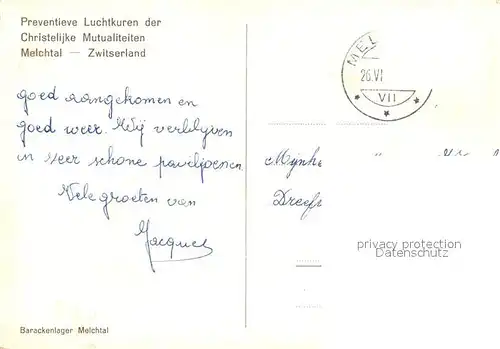 Preventieve Luchtkuren der
Christelijke Mutualiteiten
Melchtal — Zwitserland
goed aangekomen en
goed weer. Wij verblijven
in zeer schone paviljoenen.
Vele groeten van
Jacques
Barackenlager Melchtal
MEL
26.VI
VII
Mijnh
Dreef
privacy protection
Datenschutz